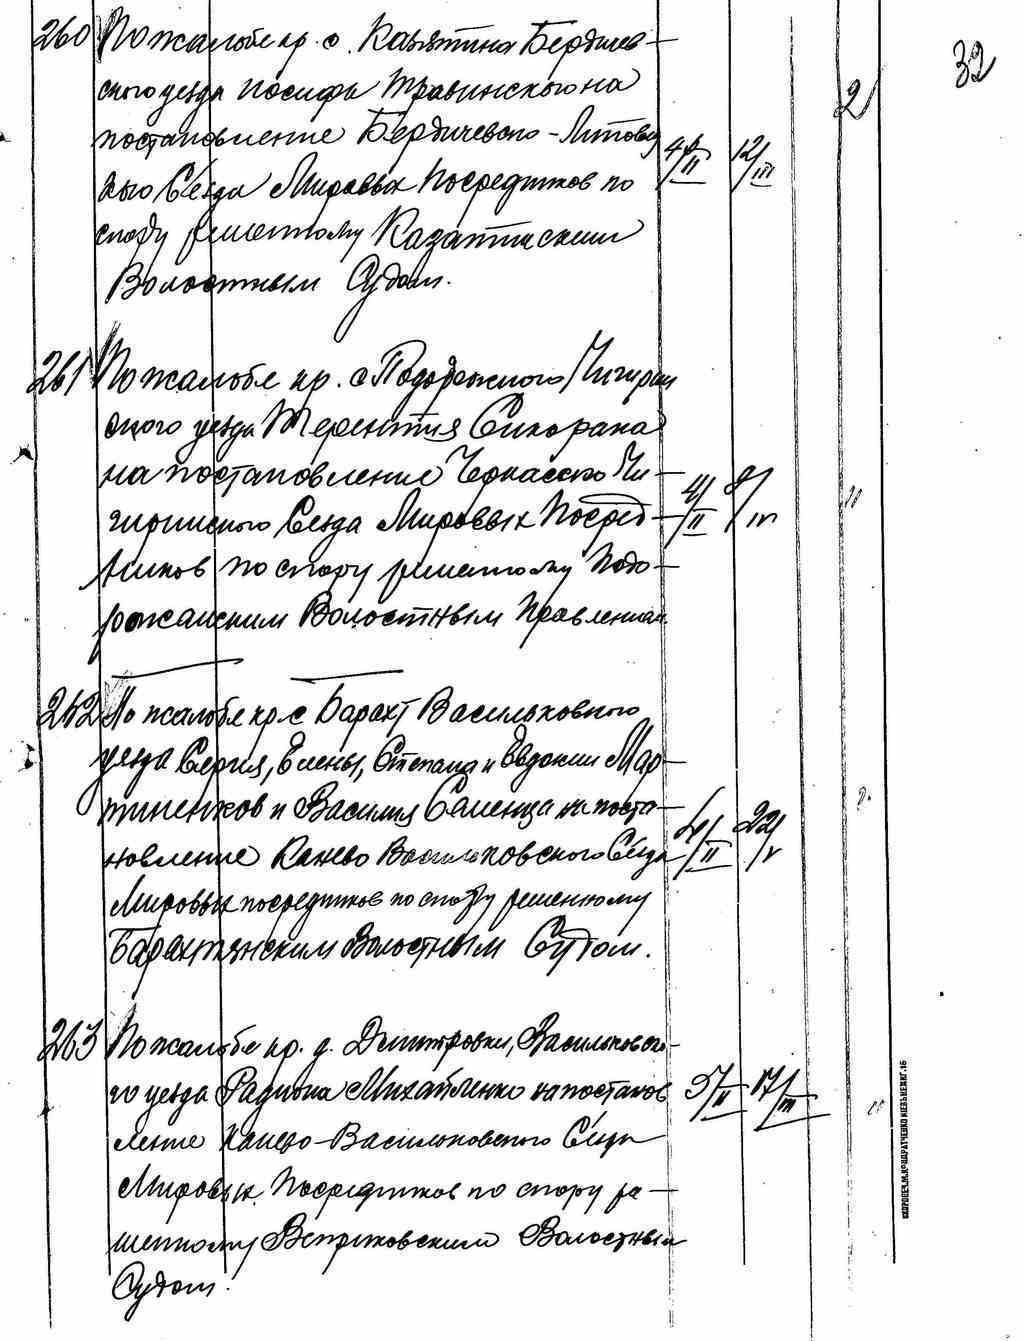 32
260 По жалобе кр. с. Казатина Бердичев-
ского уезда Иосифа Травинского на
постановление Бердичевско-Липовец
кого Съезда Мировых Посредников по
спору решенному Казатинским
Волостным Судом.
4/II 12/III 2
261 По жалобе кр. с. Подорожного Чигирин
ского уезда Терентия Сикорана
на постановление Черкасско Чи-
гиринского Съезда Мировых Посред-
ников по спору решенному Подо-
рожанским Волостным Правлением
4/II 9/IV "
262 По жалобе кр. с. Барахт Васильковного
уезда Сергия, Елены, Степана и Евдокии Мар-
тиненков и Василия Саменца на поста-
новление Канево Васильковского Съезда
Мировых посредников по спору решенному
Барахтянским Волостным Судом.
4/II 22/V "
263 По жалобе кр. д. Дмитровки, Васильковско-
го уезда Радиона Михайленко на постанов
ление Канево-Васильковского Съезда
Мировых Посредников по спору ре-
шенному Веприковским Волостным
Судом.
5/II 17/III "